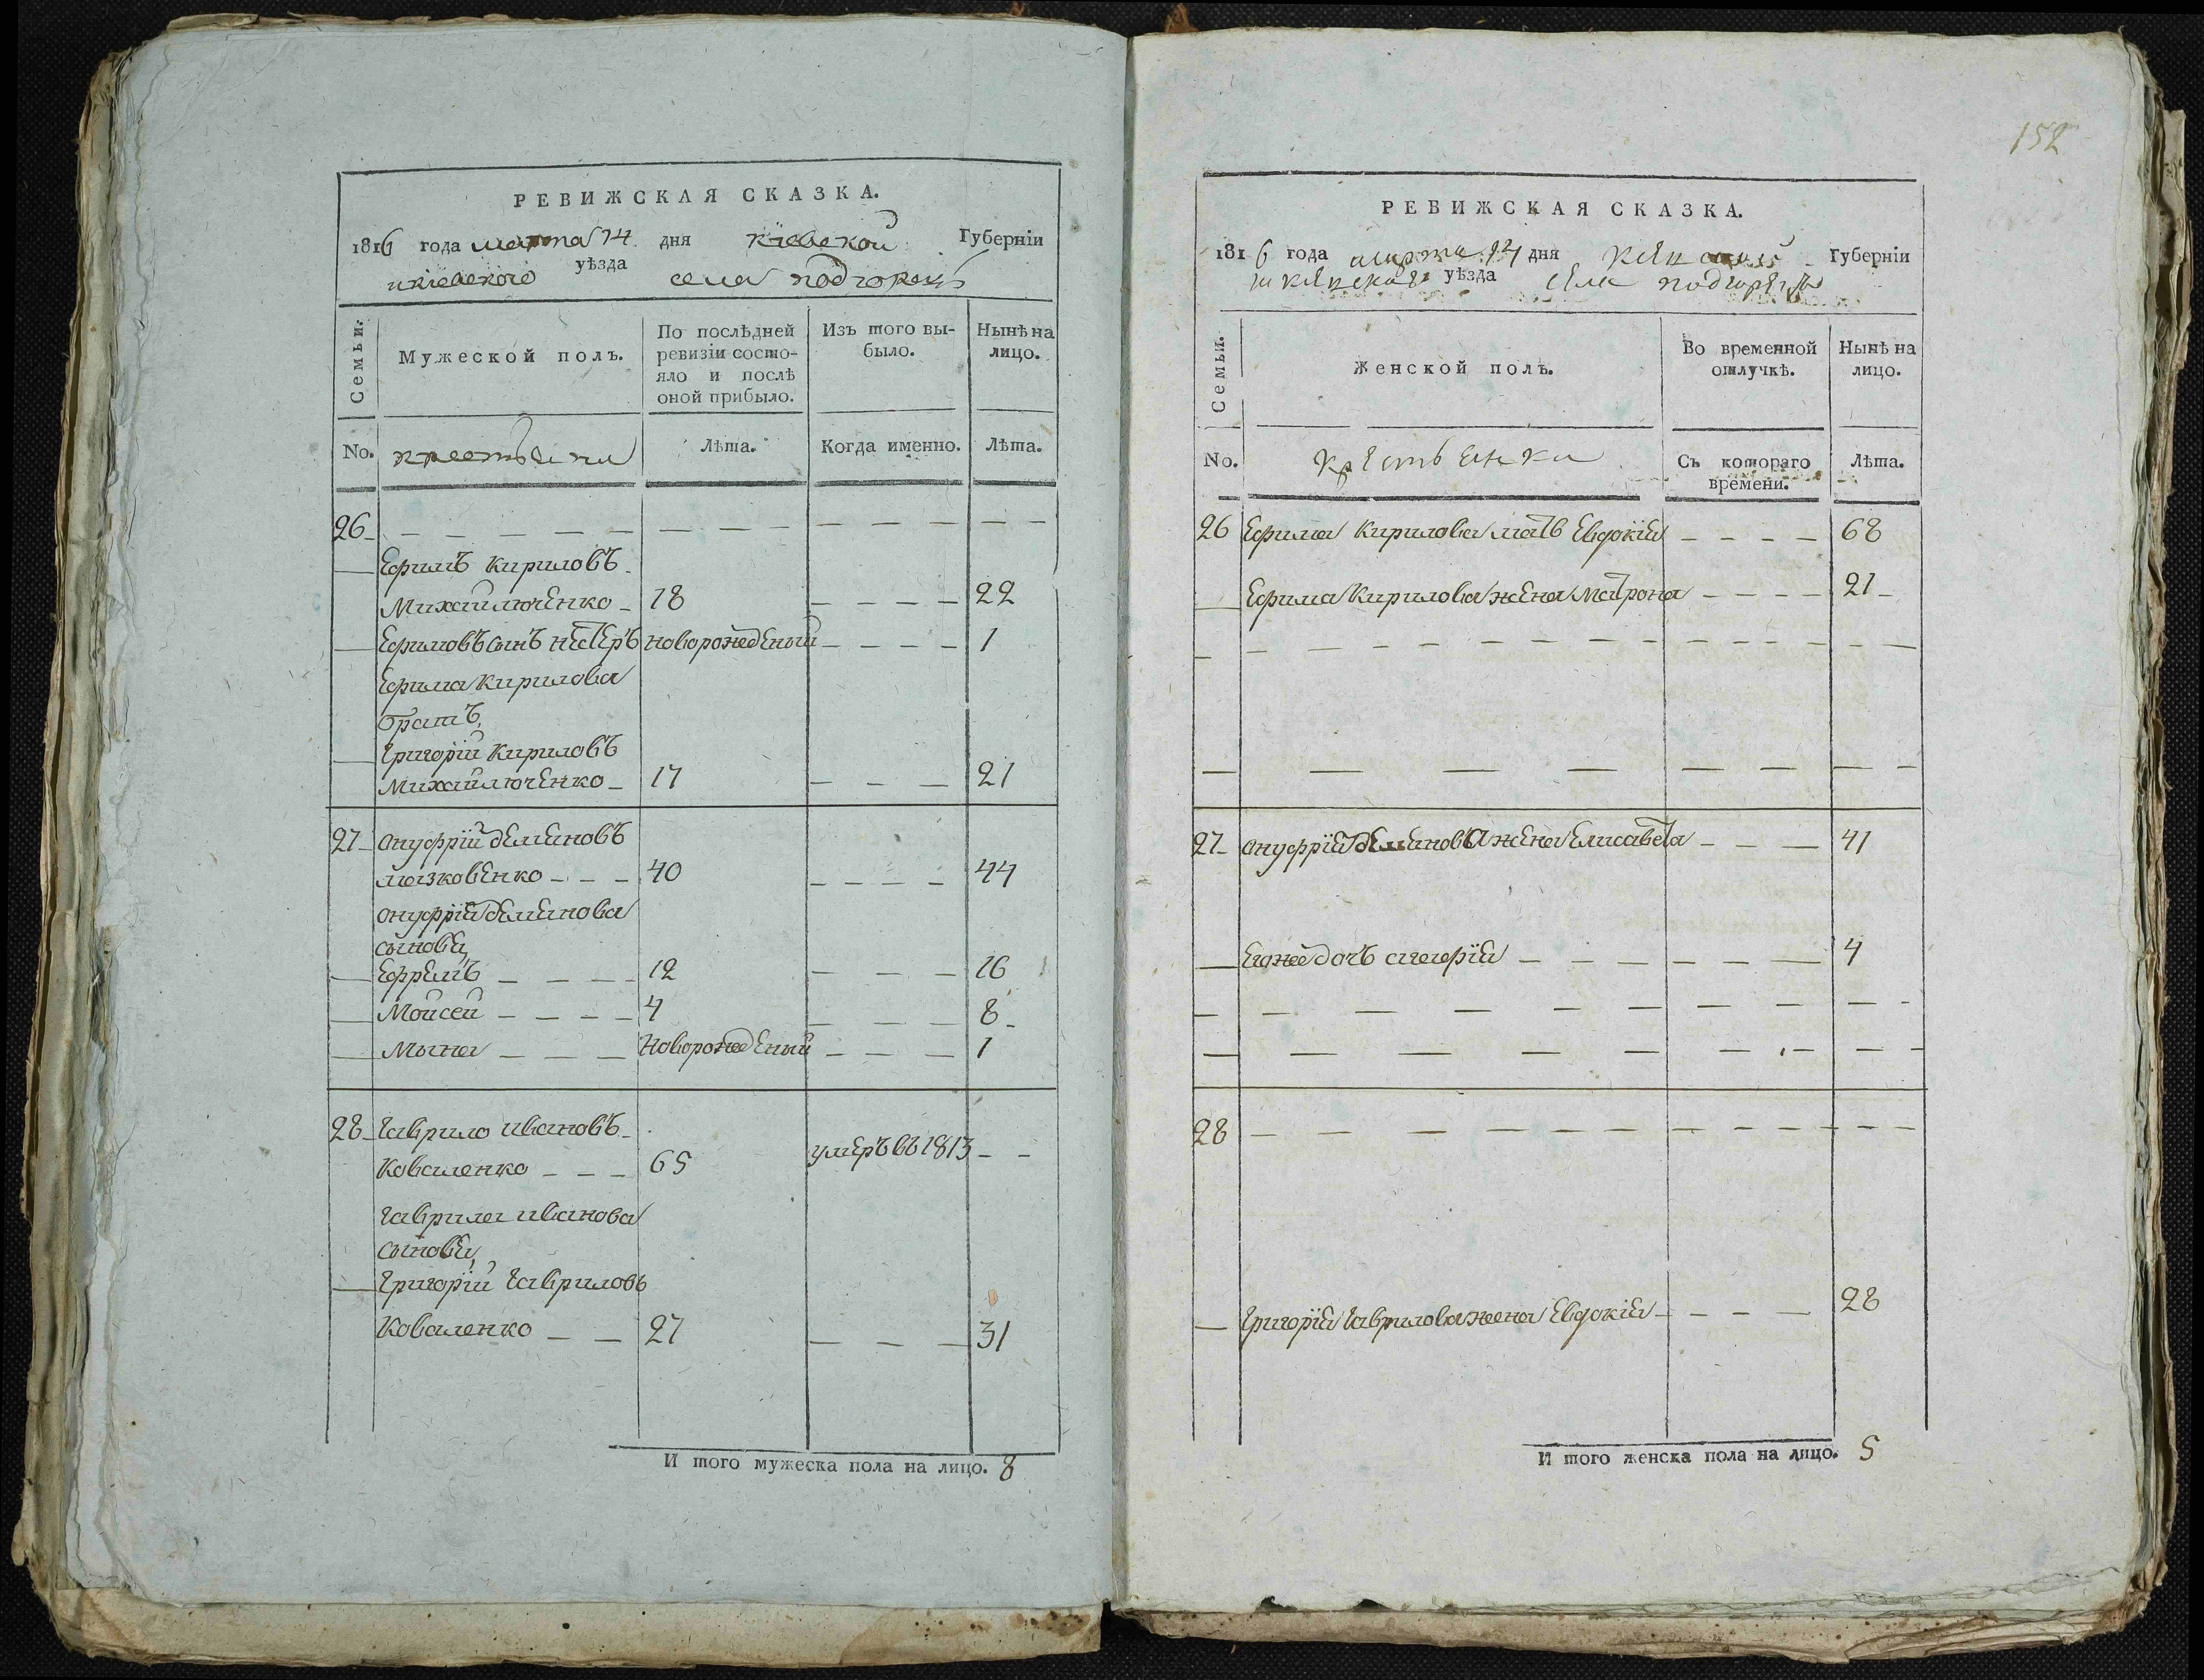 РЕВИЖСКАЯ СКАЗКА.
1816 года марта 14 дня киевской Губерніи
и киевского уѣзда села подгорець
Семьи.
Мужеской полъ.
По послѣдней ревизіи состо-
яло и послѣ
оной прибыло.
Изъ того вы-
было.
Нынѣ на
лицо.
No.
крестьяни
Лѣта.
Когда именно.
Лѣта.
26
Ефимъ Кириловъ
Михайлюченко 18 22
Ефимовъ сынъ нестеръ новорожденый 1
Ефима Кирилова
братъ,
Григорій Кириловъ
Михайлюченко 17 21
27 Онуфрій Деминовъ
40 44
Онуфрія Деминова
сыновья
Ефремъ 12 16
Мойсей 4 8
Мына Новорожденый 1
28 Гаврило ивановъ
Коваленко 65 умеръ въ 1813
Гаврила иванова
сыновья,
Григорій Гавриловъ
Коваленко 27 31
И того мужеска пола на лицо. 8
152
РЕВИЖСКАЯ СКАЗКА.
1816 года марта 14 дня Губерніи
уѣзда села
Семьи.
Женской полъ.
Во временной
отлучкѣ.
Нынѣ на
лицо.
No.
крестьянки
Съ котораго
времени.
Лѣта.
26 Ефима Кирилова мать Евдокія 68
Ефима Кирилова жена Матрона 21
27 Онуфрія Деминова жена Елисавета 41
Егожъ дочь агафія 4
28
Григорія Гаврилова жена Евдокія 28
И того женска пола на лицо. 5